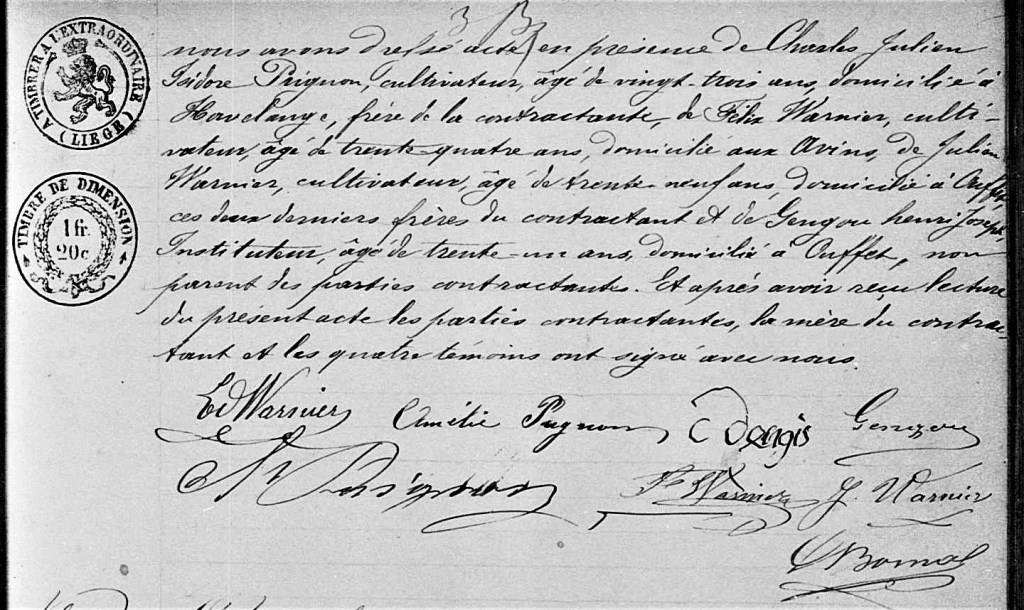 A TIMBRER A L'EXTRAORDINAIRE
(LIEGE)
TIMBRE DE DIMENSION
1 fr.
20c.
3 B
nous avons dressé acte, en présence de Charles Julien
Isidore Prignon, cultivateur, âgé de vingt-trois ans, domicilié à
Havelange, frère de la contractante, de Félix Warnier, culti-
vateur, âgé de trente-quatre ans, domicilié aux Avins, de Julien
Warnier, cultivateur, âgé de trente-neuf ans, domicilié à Ouffet
ces deux derniers frères du contractant et de Gengou henri Joseph,
Instituteur, âgé de trente-un ans, domicilié à Ouffet, non
parent des parties contractantes. Et après avoir reçu lecture
du présent acte les parties contractantes, la mère du contrac-
tant et les quatre témoins ont signé avec nous.
Ed Warnier Amélie Prignon Dengis Gengou
Prignon F. Warnier J. Warnier